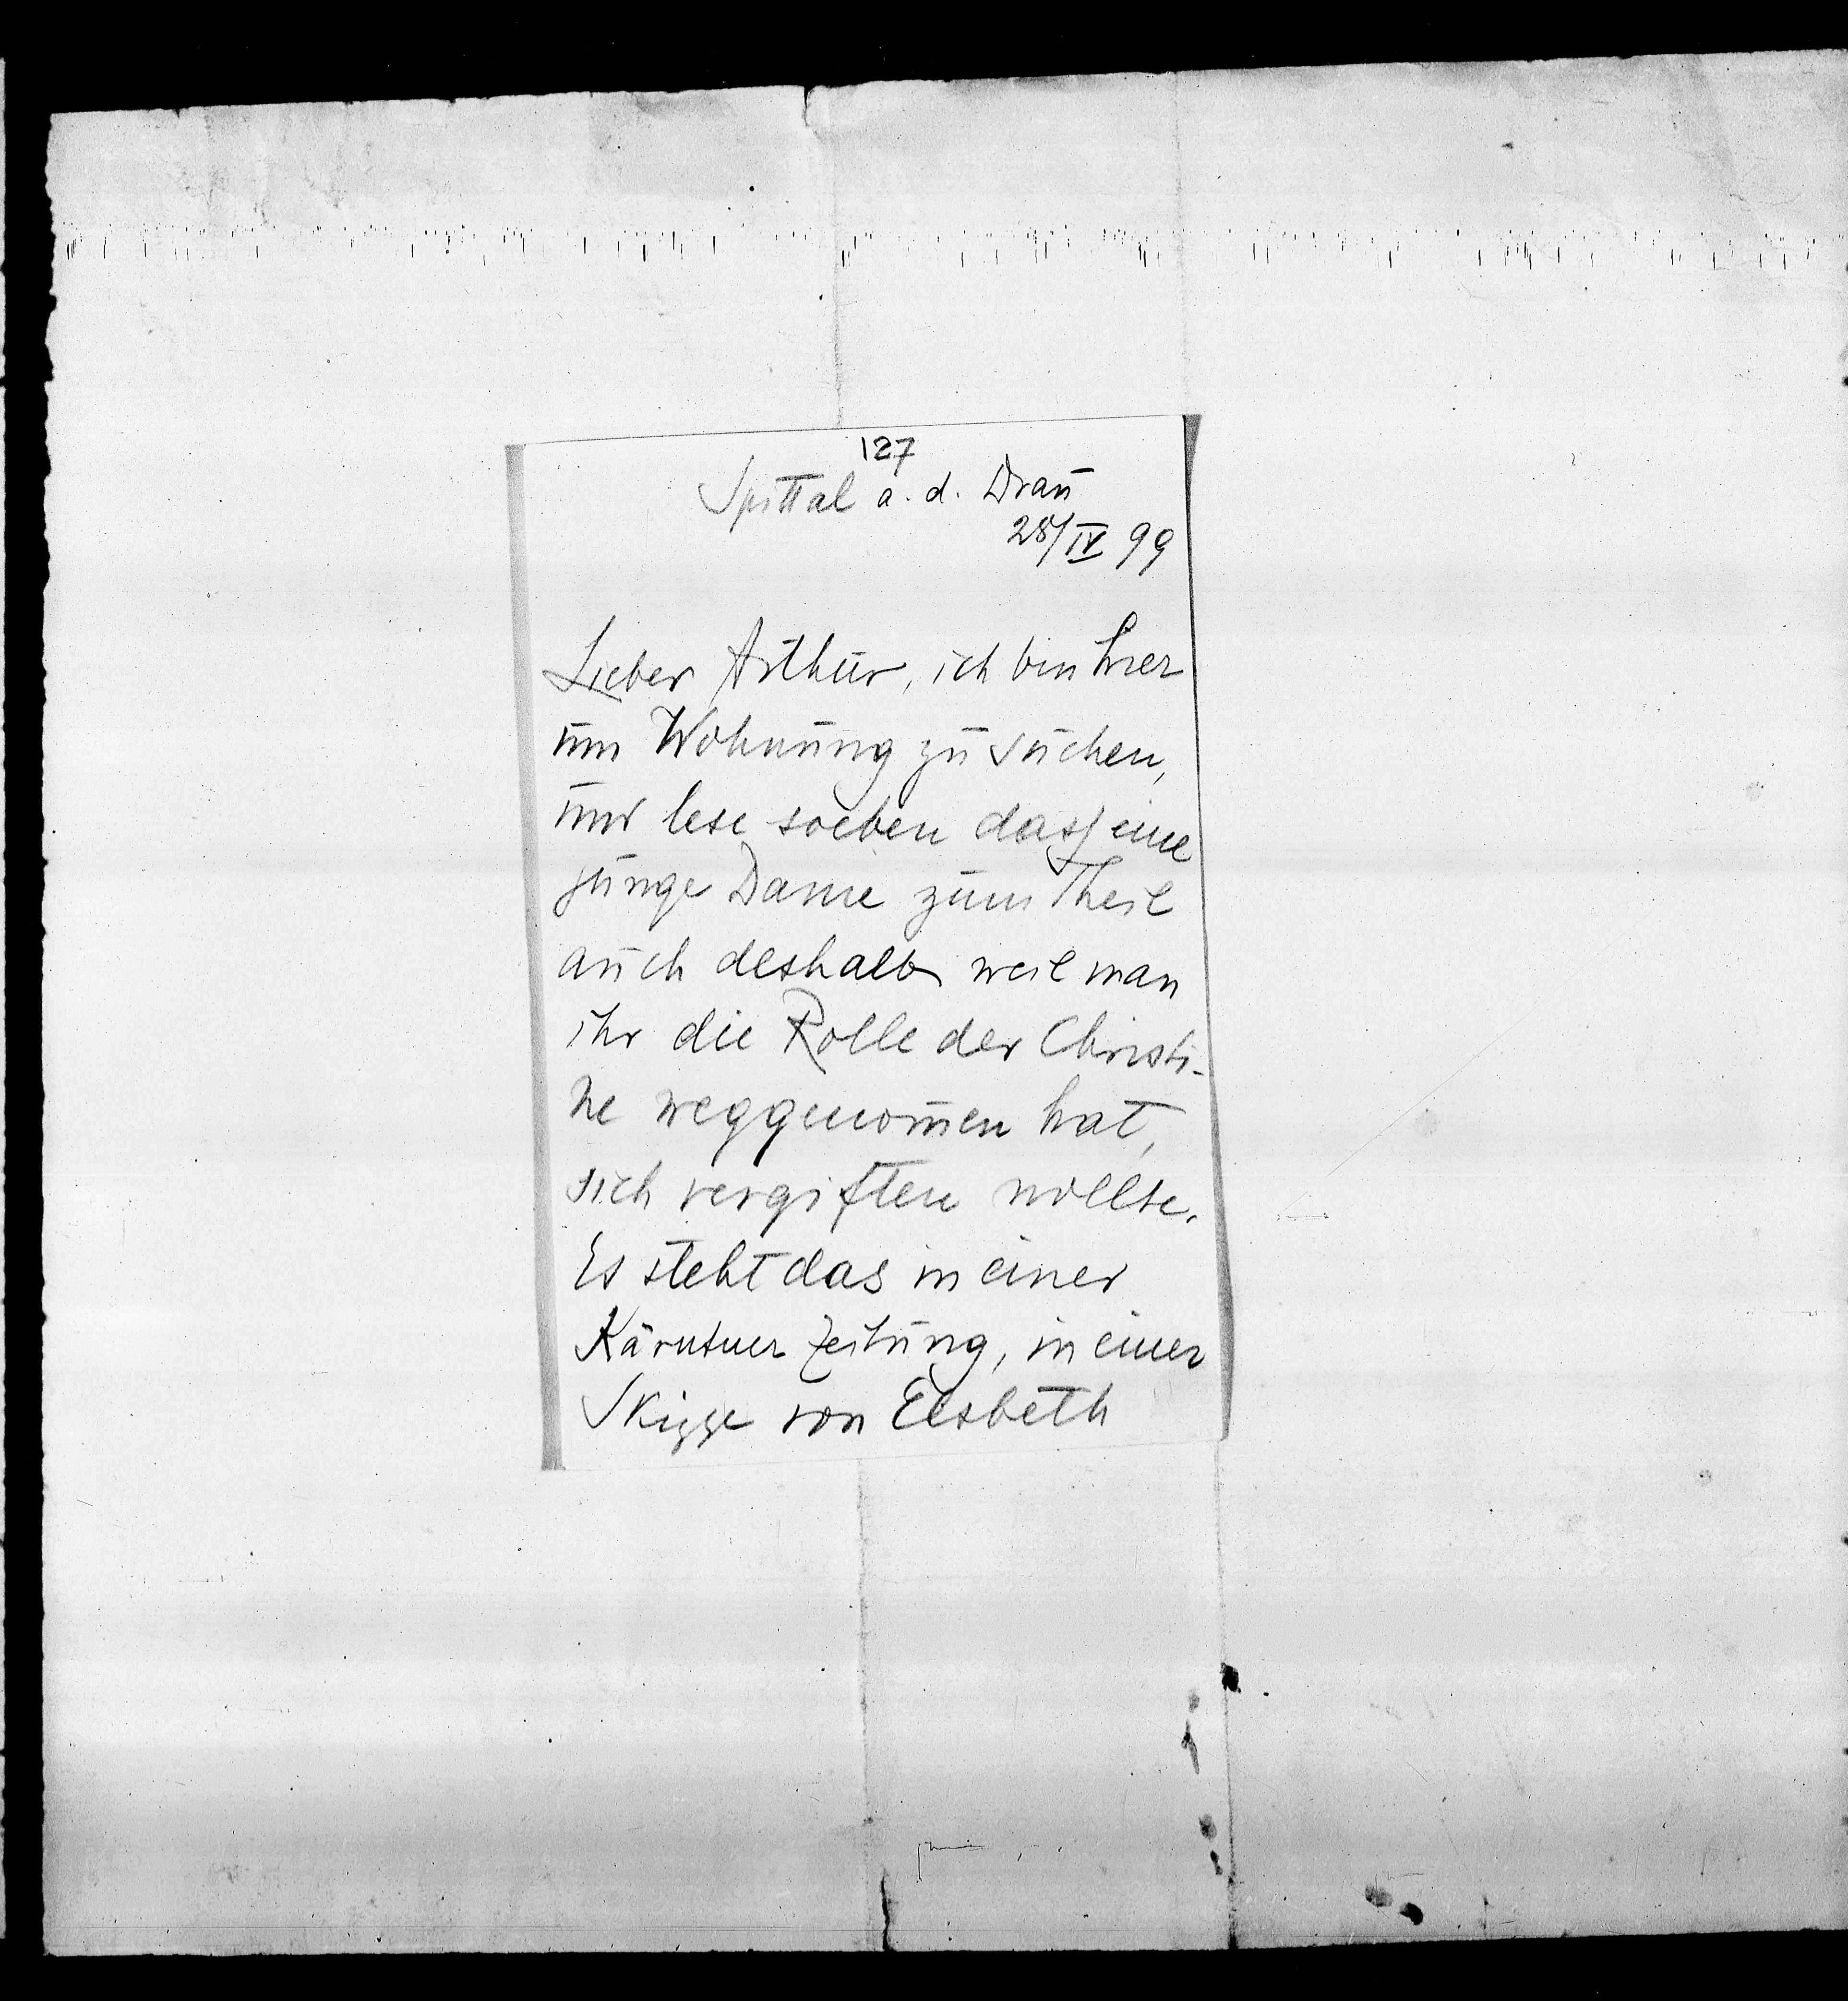 127
Spittal a. d. Drau
28/IV 99
Lieber Arthur, ich bin hier
um Wohnung zu suchen,
und lese soeben dass eine
junge Dame zum Theil
auch deshalb weil man
ihr die Rolle der Christi-
ne weggenom̄en hat,
sich vergiften wollte.
Es steht das in einer
Kärntner Zeitung, in einer
Skizze von Elsbeth